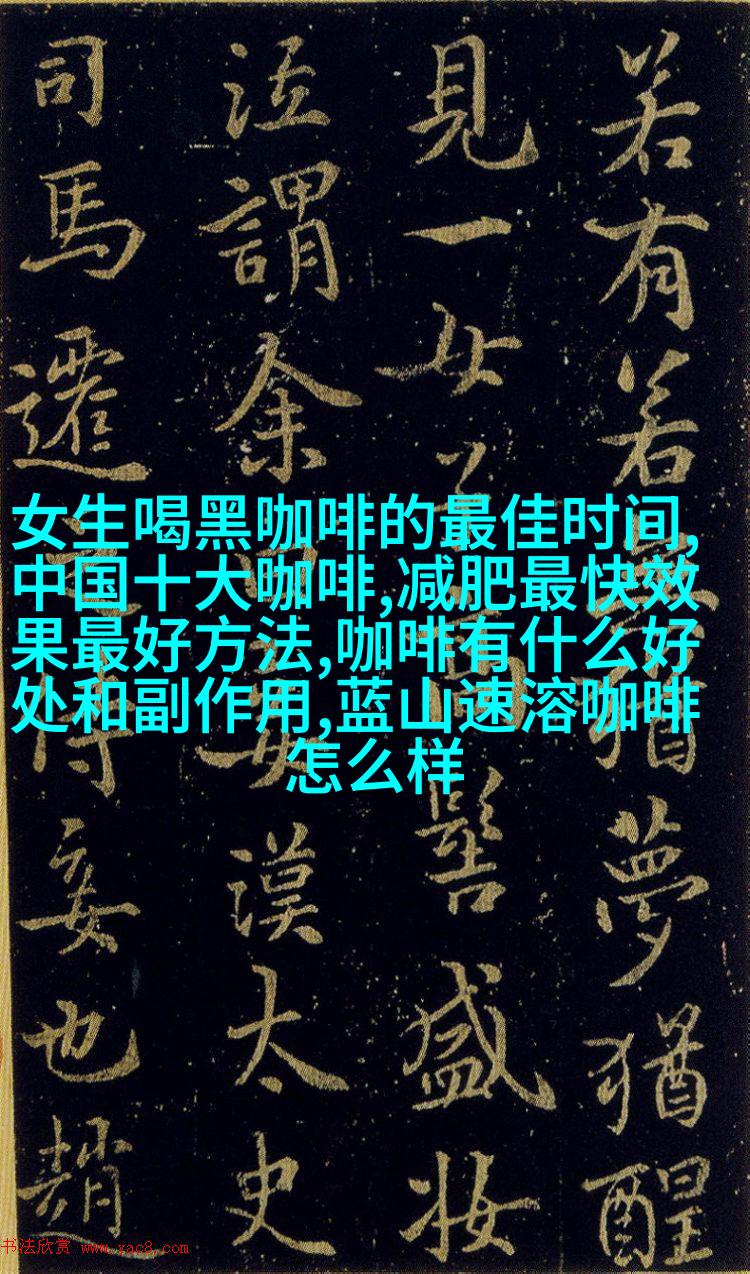 若有若無猶夢猶醒
見一女子高髻盛妝
泣謂余曰妾漢太史
司馬遷之侍妾也趙
女生喝黑咖啡的最佳时间,
中国十大咖啡,减肥最快效
果最好方法,咖啡有什么好
处和副作用,蓝山速溶咖啡
怎么样
书法欣赏 www.yac8.com